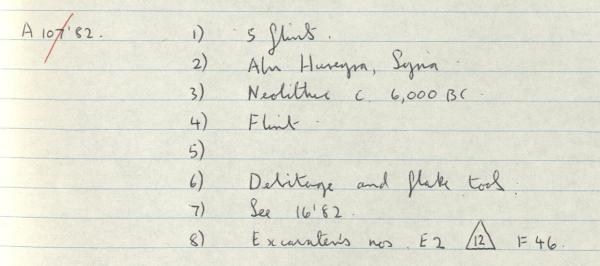 A 107'82. 1) 5 flints.
2) Abu Hureyra, Syria.
3) Neolithic c. 6,000 BC.
4) Flint.
5)
6) Debitage and flake tools.
7) See 16'82.
8) Excavater's nos. E2 12 F46.